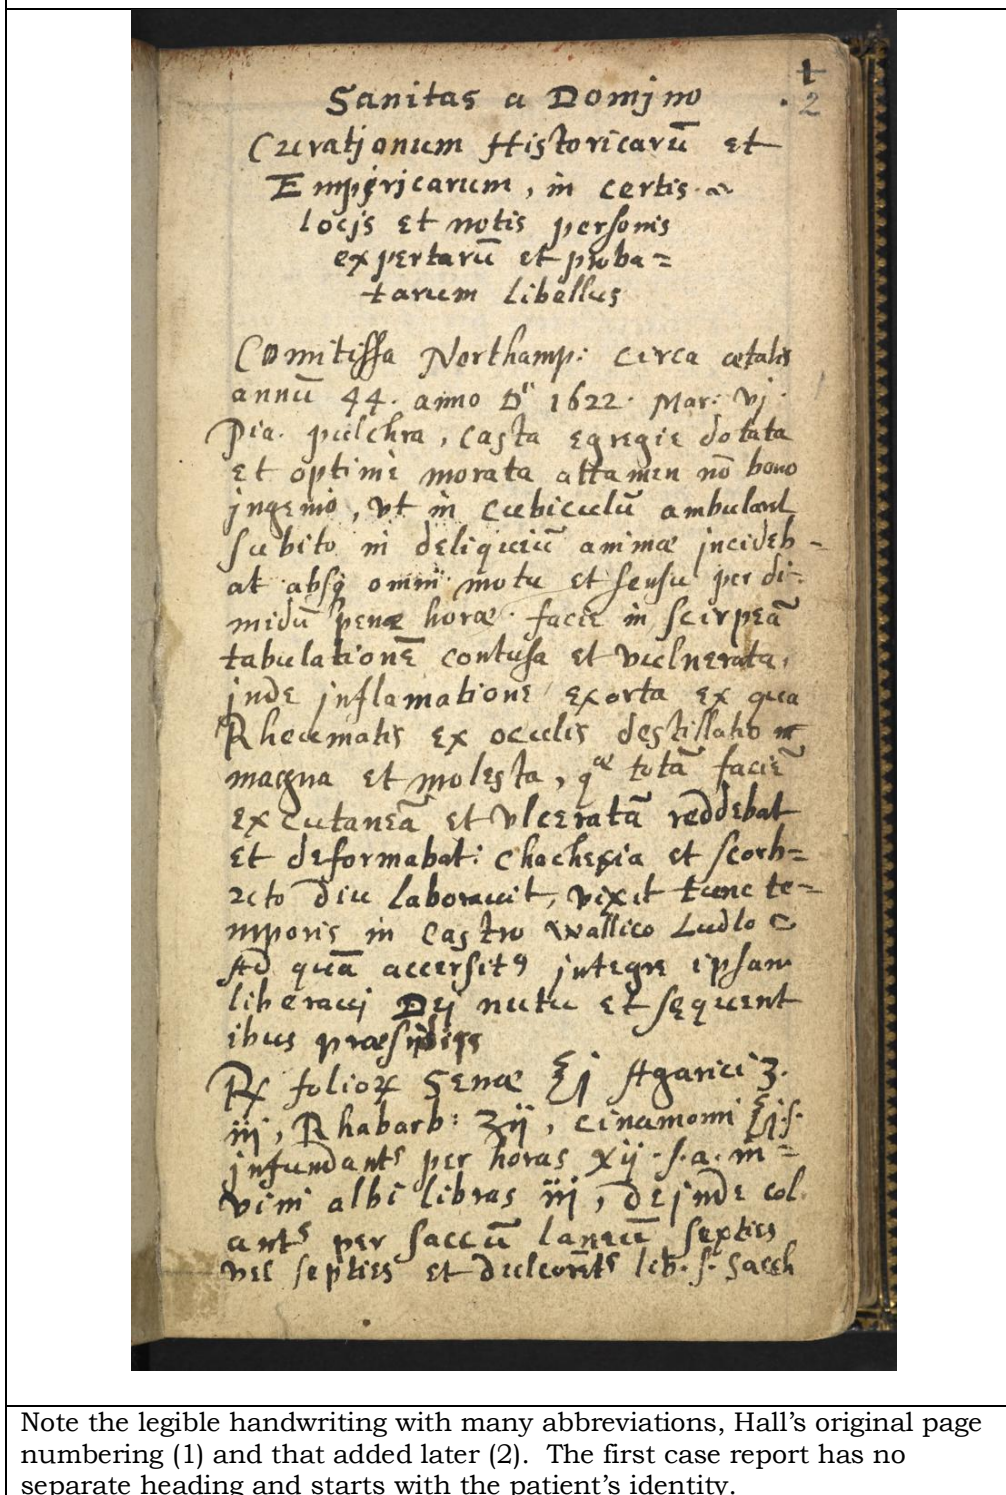 1
Sanitas a Domjno . 2
Curatjonum Historicarū et
Empirjcarum, in certis
locjs et notis personis
expertarū et proba=
tarum libellus
Comitissa Northamp: circa ætatis
annū 44. anno Dⁿⁱ 1622. Mar: vj.
Pia. pulchra, casta egregie dotata
et optime morata attamen nō bono
jngenio, vt in cubiculū ambulant
subito in deliquiū animæ jncideb-
at absq omni motu et sensu per di-
midiū pene horæ. facie in scirpeā
tabulationē contusa et vulnerata,
jnde jnflamatione exorta ex qua
Rheumatis ex oculis destillatio
magna et molesta, qᵃᵉ totā faciē
excutaneā et vlceratā reddebat
et deformabat: Chachexia et scorb=
uto diu laborauit, vixit tunc te-
mporis in Castro Wallico Ludlo
Ad quā accersitꝰ jntegre ipsam
liberauj Dej nutu et sequent
ibus præsidijs
℞ folioꝝ Senæ ℥j Agarici ʒ.
iij, Rhabarb: ʒij, cinamomi ℥j.s.
jnfundantˢ per horas xij. s.a. in=
vini albi libras iij, dejnde col.
antˢ per saccū laneū sexties
vel septies et dulcorētˢ lib. s. Sacch
Note the legible handwriting with many abbreviations, Hall’s original page
numbering (1) and that added later (2). The first case report has no
separate heading and starts with the patient’s identity.